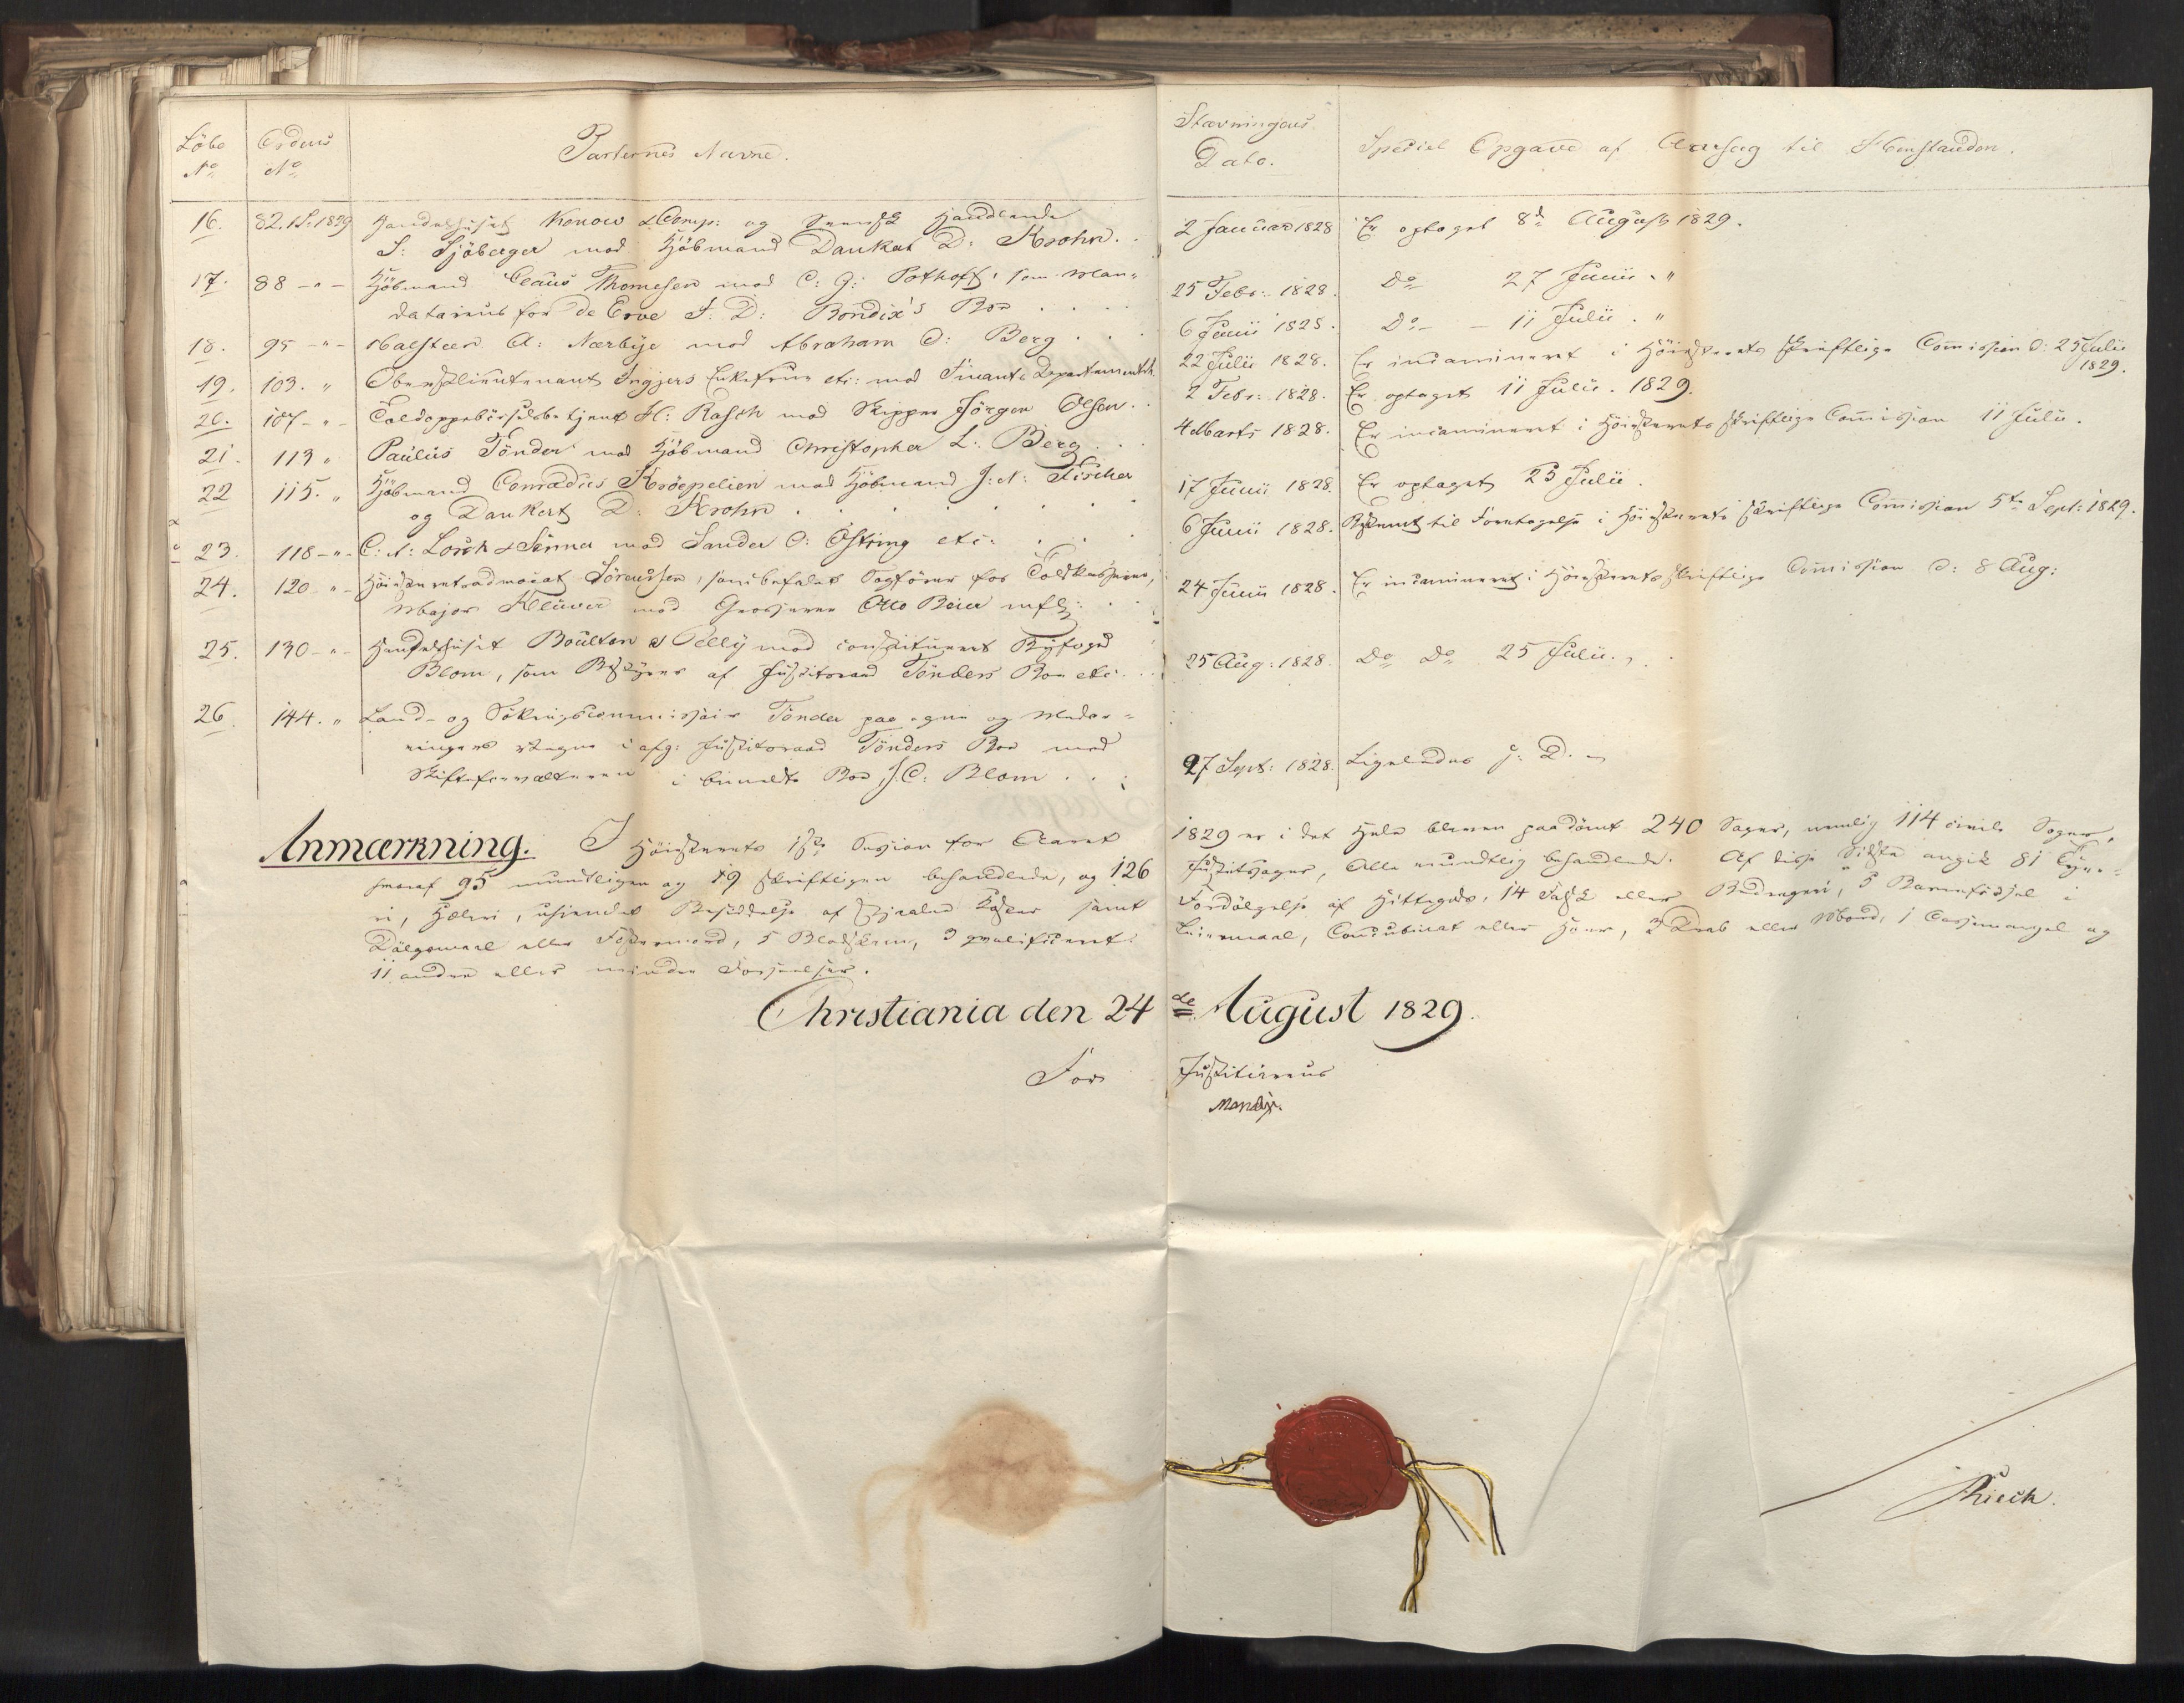 Löbe Ordens Parternes Navne. Stævningens Speciel Opgave af Aarsag til Henstanden.
No No Dato.
16. 82. 1 S. 1829 Handelshuset Konow & Comp: og Svensk Handlende 2 Januar 1828 Er optaget 8de August 1829.
S: Sjöberger mod Kjöbmand Dankert D: Krohn.
17. 88 - " - Kjöbmand Claus Thomesen mod C: G: Pothoff, som Man- 25 Febr: 1828. Do 27 Junii "
datarius for De Erve J: D: Bondix's Boe
18. 95 - " - Halsteen A: Nærbye mod Abraham D: Berg 6 Junii 1828. Do - 11 Julii "
19. 103. " Oberstlieutenant Ingjers Enkefrue etc: mod Finants Departementet 22 Julii 1828. Er incamineret i Höiesterets skriftlige Commission d: 25 Julii 1829.
20. 107 - " - Toldoppebörselsbetjent H: Rasch mod Skipper Jörgen Olsen 2 Febr: 1828. Er optaget 11 Julii 1829.
21. 113 " Paulus Tönder mod Kjöbmand Christopher L: Berg 4 Marts 1828. Er incamineret i Höiesterets skriftlige Commission 11 Julii.
22 115. " Kjöbmand Conradus Kröepelien mod Kjöbmand J: N: Fischer 17 Junii 1828. Er optaget 25 Julii.
og Dankert D: Krohn
23. 118 - " - C: A: Lorck & Sönner mod Sander O: Östring etc: 6 Junii 1828. Bestemt til Foretagelse i Höiesterets skriftlige Commission 5te Sept: 1829.
24. 120 " - Höiesteretsadvocat Sörenssen, som befalet Sagförer for Toldkasserer, 24 Junii 1828. Er incamineret i Höiesterets skriftlige Commission d: 8 Aug:
Major Klüver mod Grosserer Otto Beier mfl:
25. 130 - " - Handelshuset Boulton & Pelly mod constitueret Byfoged 25 Aug: 1828. Do Do 25 Julii.
Blom, som Bestyrer af Justitsraad Tönders Boe etc.
26 144. " Land- og Sökrigscommissair Tönder paa egne og Medar-
vingers Vegne i afg: Justitsraad Tönders Boe mod
Skifteforvalteren i bemeldte Boe, J. C: Blom 27 Sept: 1828. Ligeledes s: D.
Anmærkning. I Höiesterets 1ste Session for Aaret 1829 er i det Hele bleven paadömt 240 Sager, nemlig 114 civile Sager,
hvoraf 95 mundtligen og 19 skriftligen behandlede, og 126 Justitssager, Alle mundtlig behandlede. Af disse Sidste angik 81 Tyve-
ri, Hæleri, uhjemlet Besiddelse af stjaalne Koster samt Fordölgelse af Hittegods, 14 Falsk eller Bedrageri, 5 Barnefödsel i
Dölgsmaal eller Fostermord, 5 Blodskam, 3 qvalificeret Leiermaal, Concubinat eller Hoer, 3 Drab eller Mord, 1 Cassemangel og
11 andre eller mindre Forseelser.
Christiania den 24de August 1829.
For Justitiarius
Mandix.
Riech.